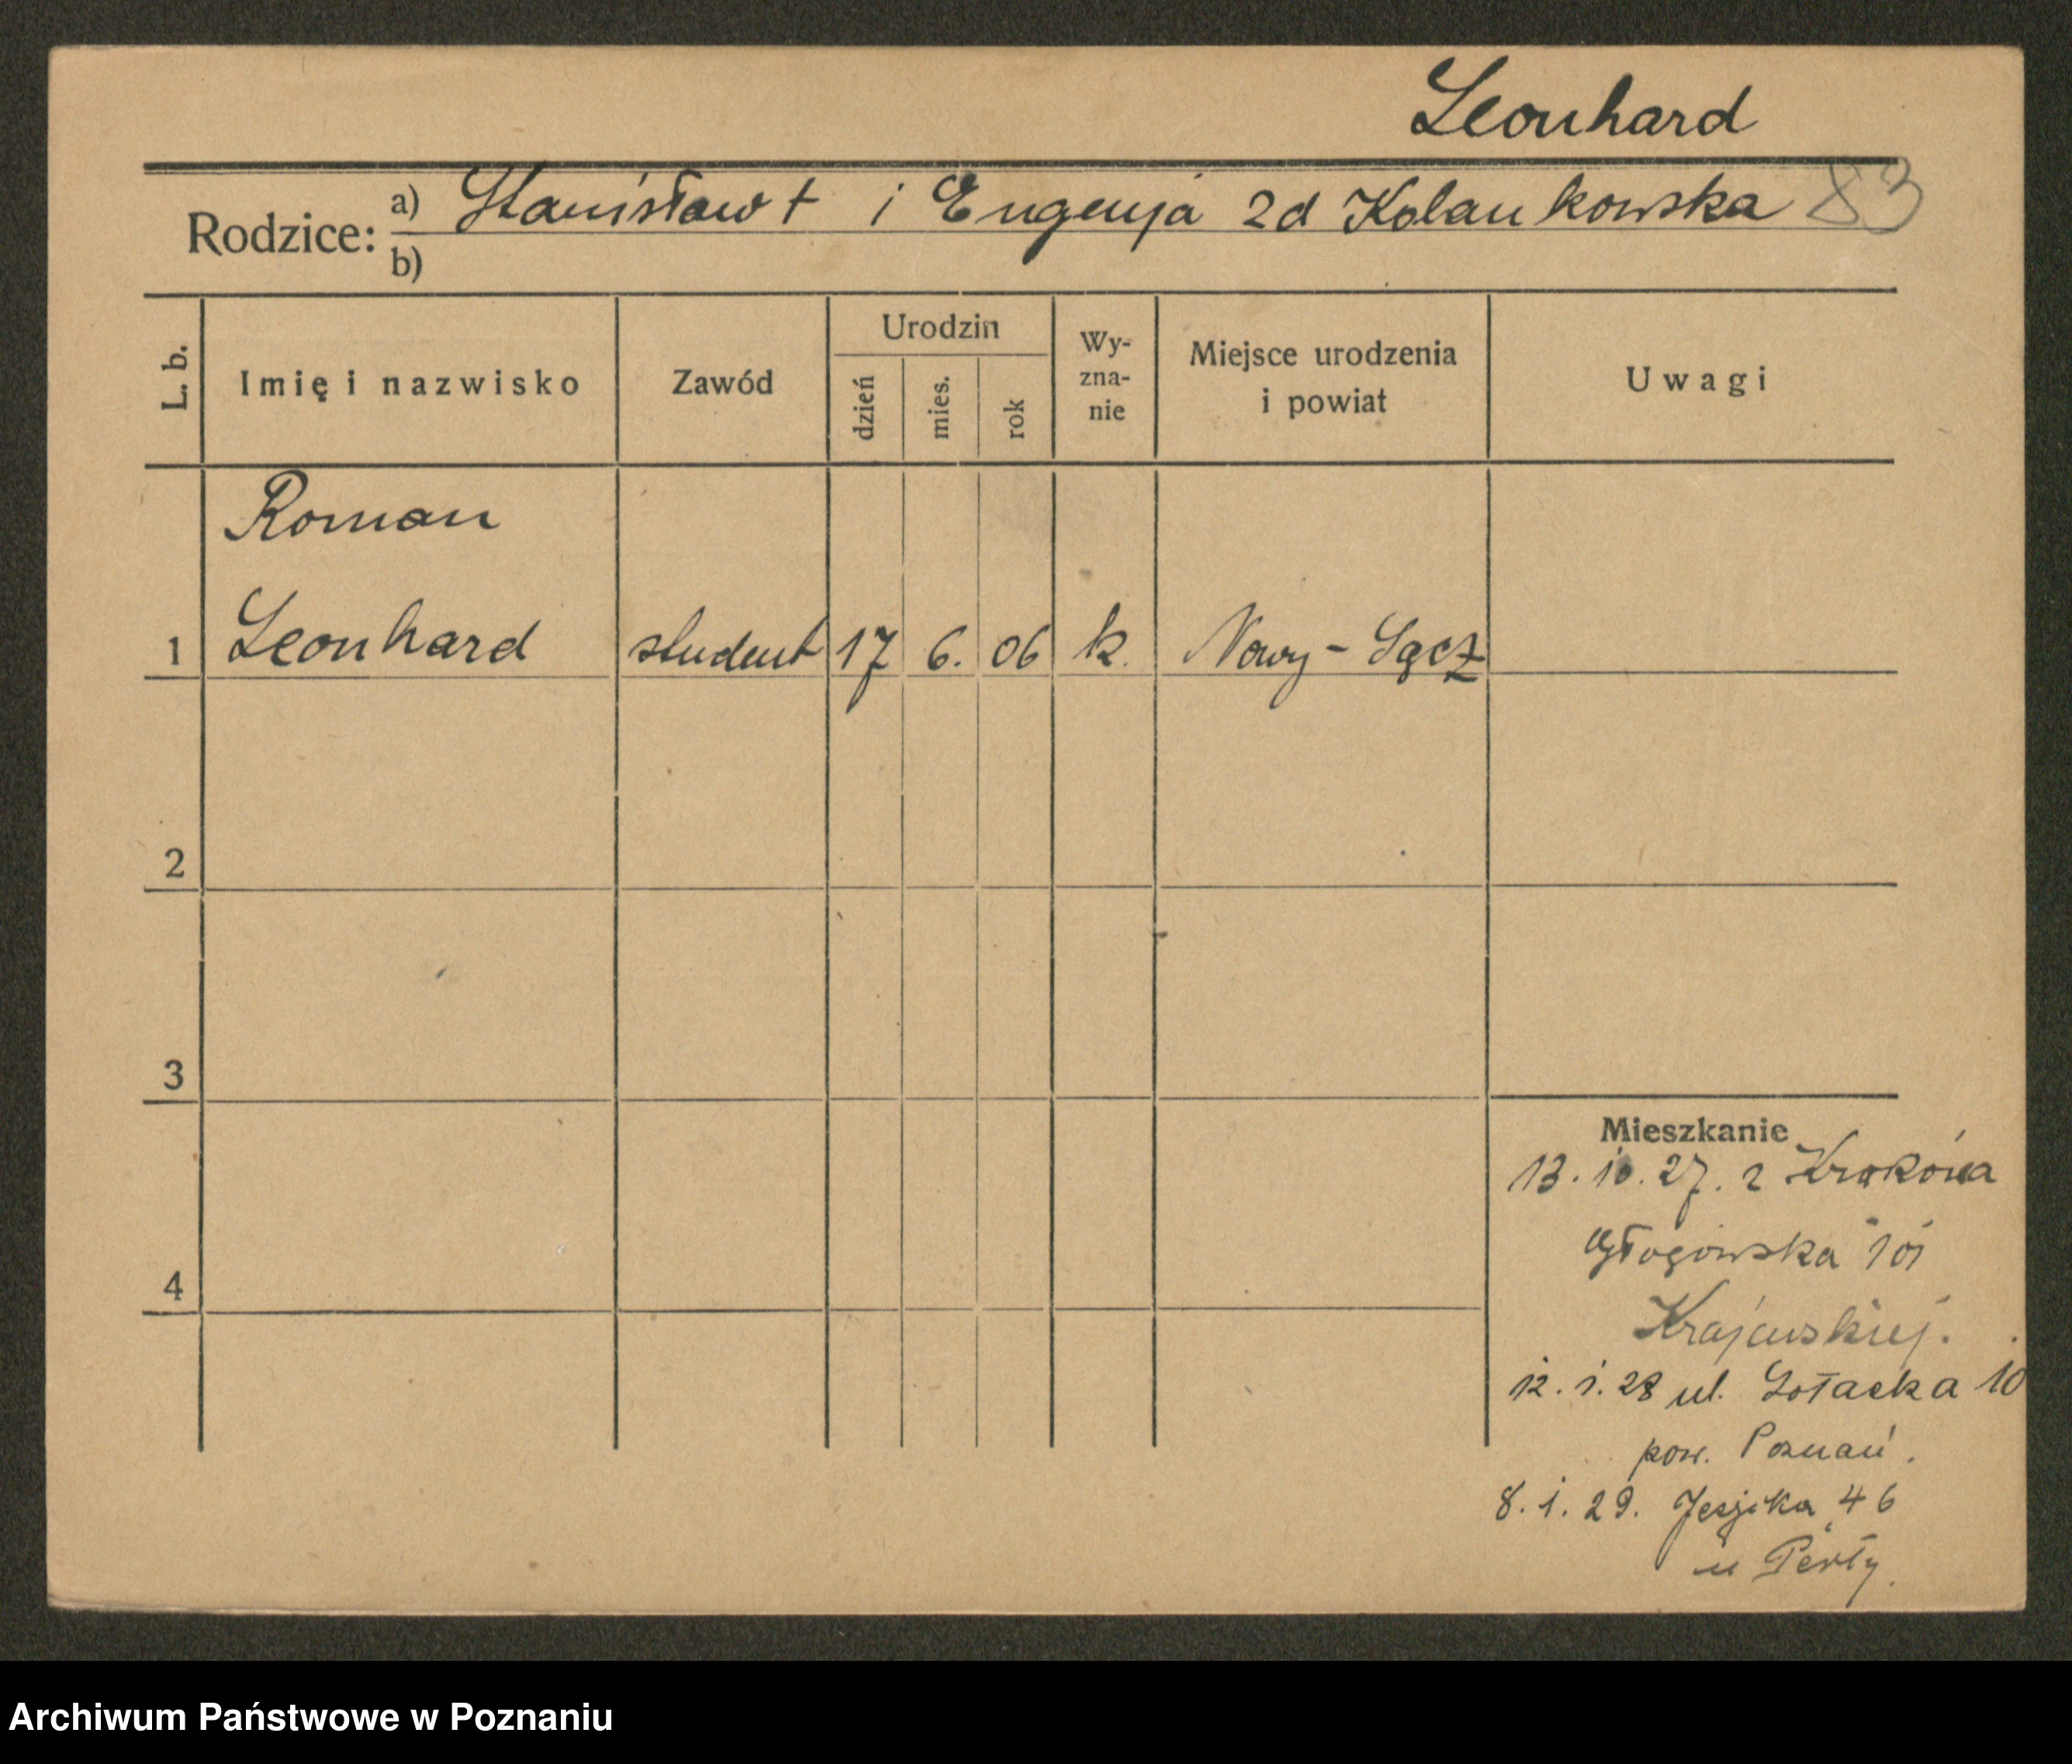 Leonhard
Rodzice: a) Stanisław † i Eugenja 2d Kolankowska 83
b)
L. b. Imię i nazwisko Zawód Urodzin dzień mies. rok Wy-zna-nie Miejsce urodzenia i powiat Uwagi
Roman
1 Leonhard student 17 6. 06 k. Nowy-Sącz
2
3
4
Mieszkanie
13. 10. 27. z Krakówa
Głogowska 101
Krajewskiej.
12. 1. 28 ul. Sołacka 10
pow. Poznań.
8. 1. 29. 46
u Perły.
Archiwum Państwowe w Poznaniu